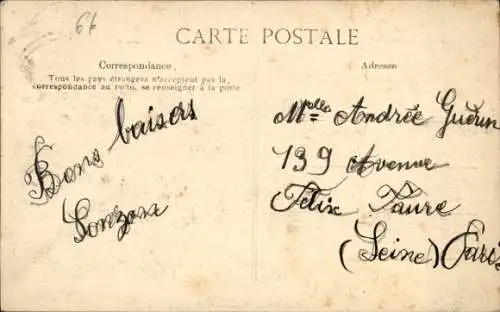 66
CARTE POSTALE
Correspondance.
Tous les pays étrangers n'acceptent pas la
correspondance au recto, se renseigner à la poste
Bons baisers
Adresse
Melle Andrée Guérin
139 Avenue
Félix Faure
(Seine) Paris